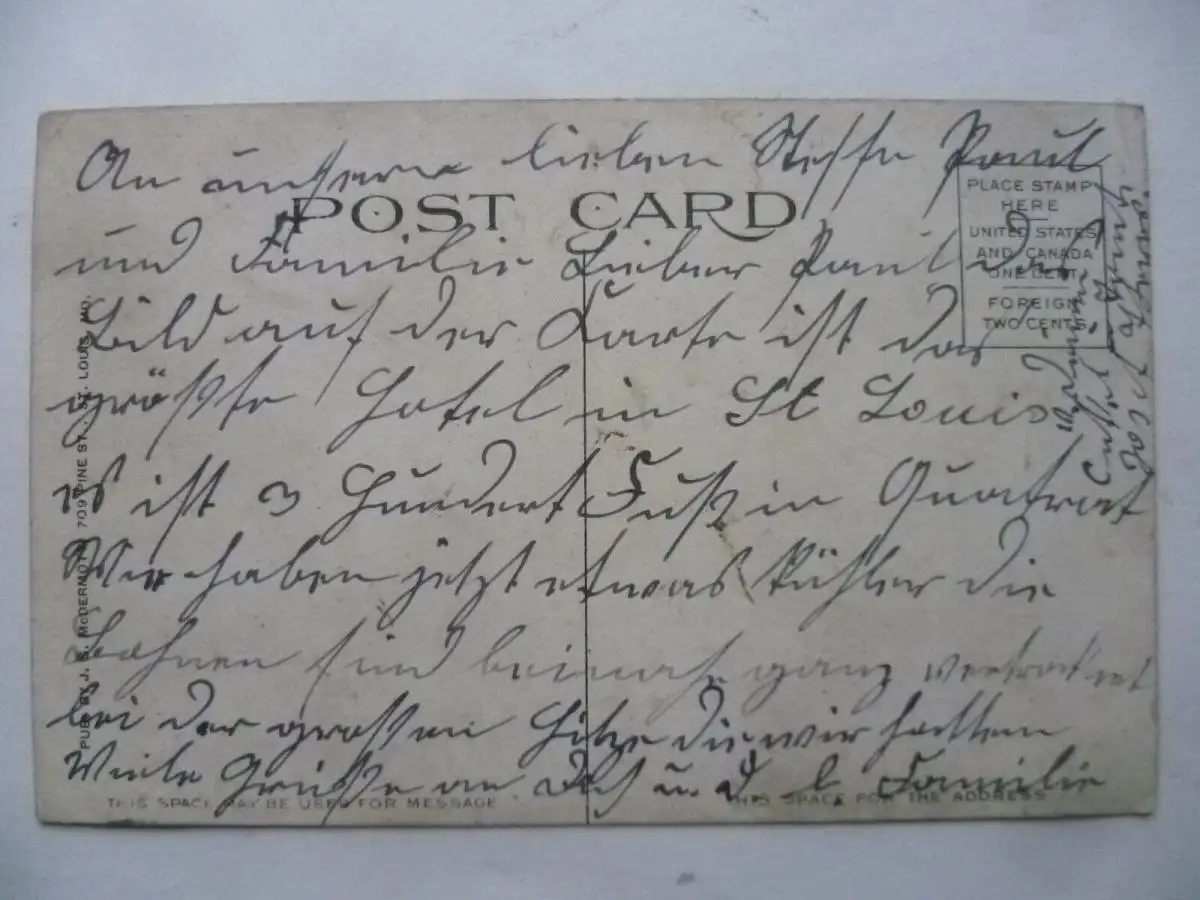 An unsern lieben Neffe Paul
POST CARD
PLACE STAMP
HERE
UNITED STATES
AND CANADA
ONE CENT
FOREIGN
TWO CENTS
und Familie Lieber Paul das
Bild auf der Karte ist das
größte Hotel in St Louis
es ist 3 Hundert Fuß in Quatrat
Wir haben jetzt etwas kühler die
Bohnen sind beinahe ganz vertrocknet
bei der grossen Hitze die wir hatten
Viele Grüße an Dich u. d. l. Familie
THIS SPACE MAY BE USED FOR MESSAGE
THIS SPACE FOR THE ADDRESS
PUB. BY J. S. McDERMOTT, 709 PINE ST., ST. LOUIS, MO.